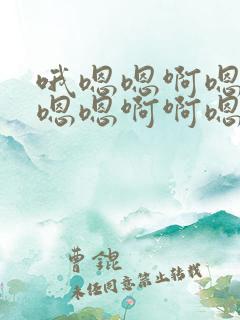 哦嗯嗯啊嗯
嗯嗯啊啊嗯
曹錕
未经同意禁止转载